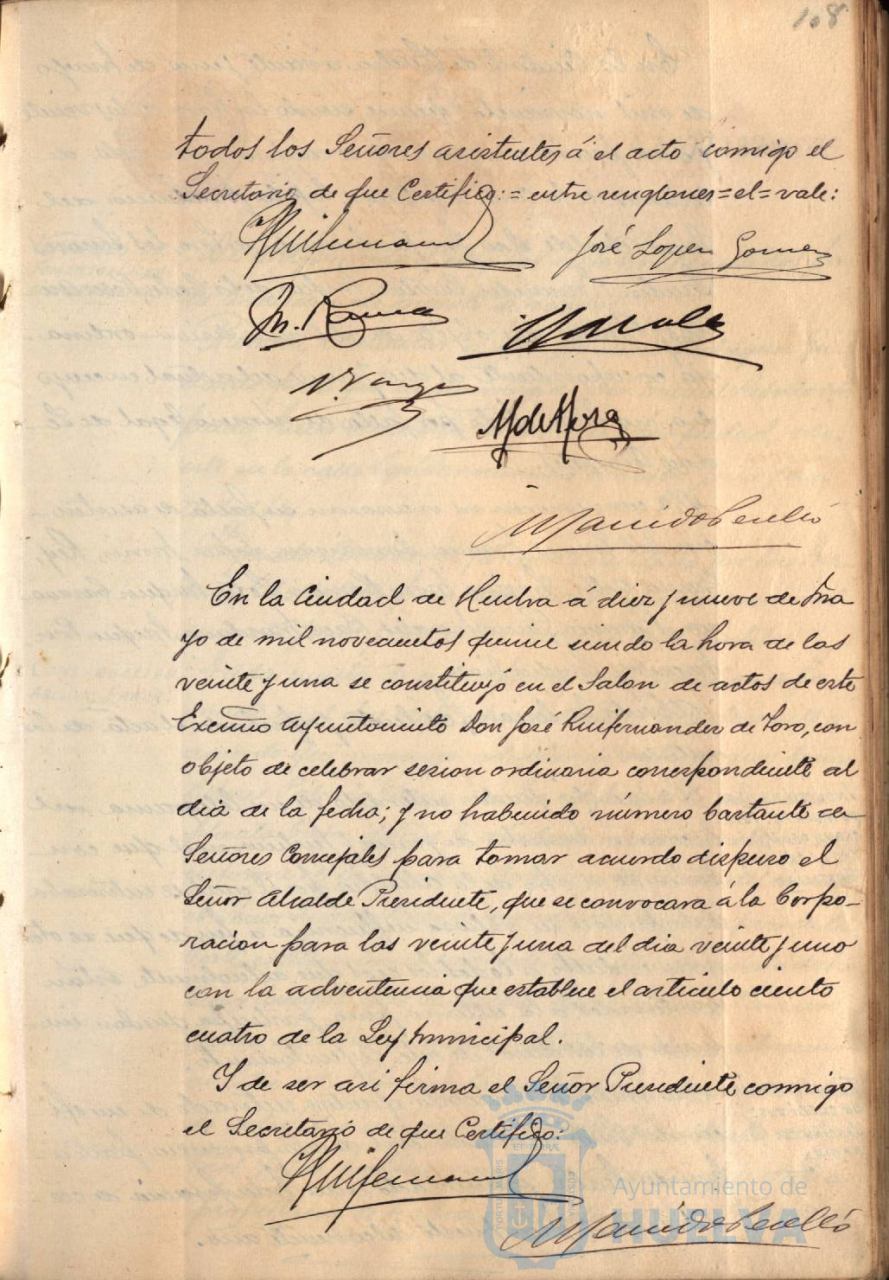 108
todos los Señores asistentes á el acto conmigo el
Secretario de que Certifico:=entre renglones=el=vale:
José Lopez Gomez
M. de Mora
En la Ciudad de Huelva á diez y nueve de Ma
yo de mil novecientos quince siendo la hora de las
veinte y una se constituyó en el Salon de actos de este
Excmo Ayuntamiento Don José Ruifernandez de Toro, con
objeto de celebrar sesion ordinaria correspondiente al
dia de la fecha; y no habiendo número bastante de
Señores Concejales para tomar acuerdo dispuso el
Señor Alcalde Presidente, que se convocara á la Corpo-
racion para las veinte y una del dia veinte y uno
con la advertencia que establece el artículo ciento
cuatro de la Ley Municipal.
Y de ser asi firma el Señor Presidente conmigo
el Secretario de que Certifico:
Ayuntamiento de
HUELVA